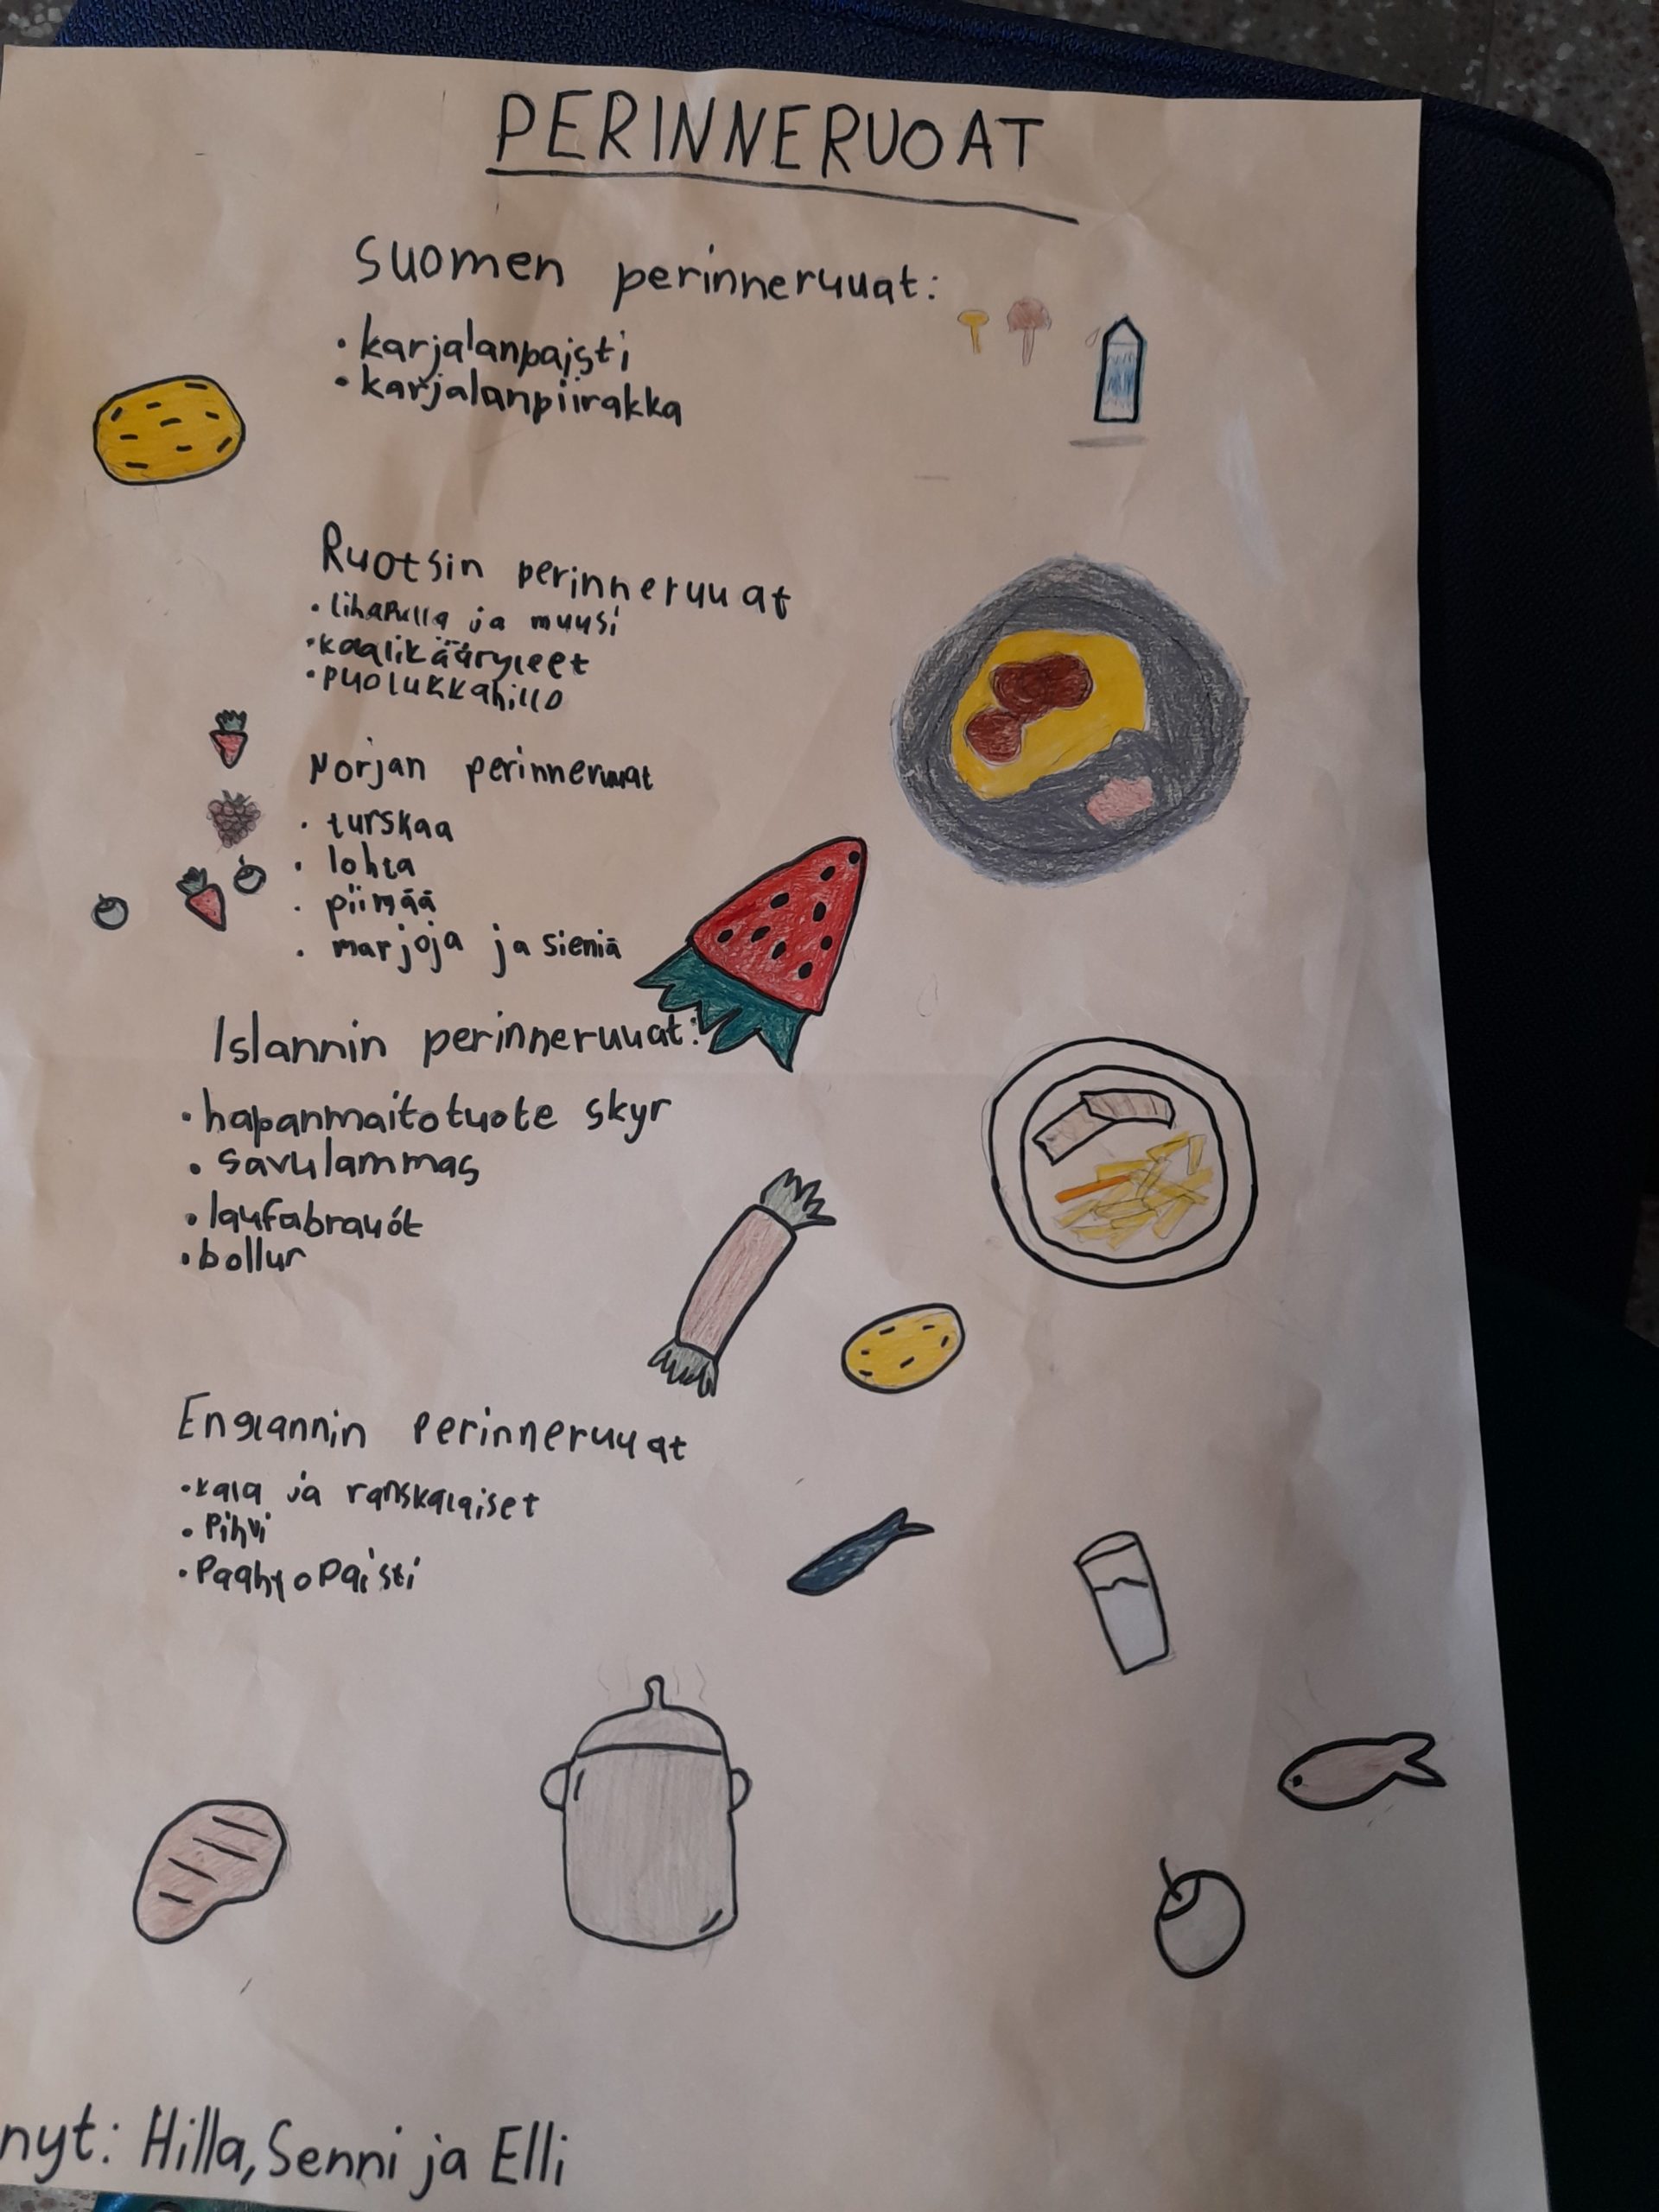 PERINNERUOAT
Suomen perinneruuat:
• karjalanpaisti
• karjalanpiirakka
Ruotsin perinneruuat
• lihapulla ja muusi
• kaalikääryleet
• puolukkahillo
Norjan perinneruuat
• turskaa
• lohta
• piimää
• marjoja ja sieniä
Islannin perinneruuat:
• hapanmaitotuote skyr
• savulammas
• laufabrauót
• bollur
Englannin perinneruuat
• kala ja ranskalaiset
• Pihvi
• Paahtopaisti
nyt: Hilla, Senni ja Elli